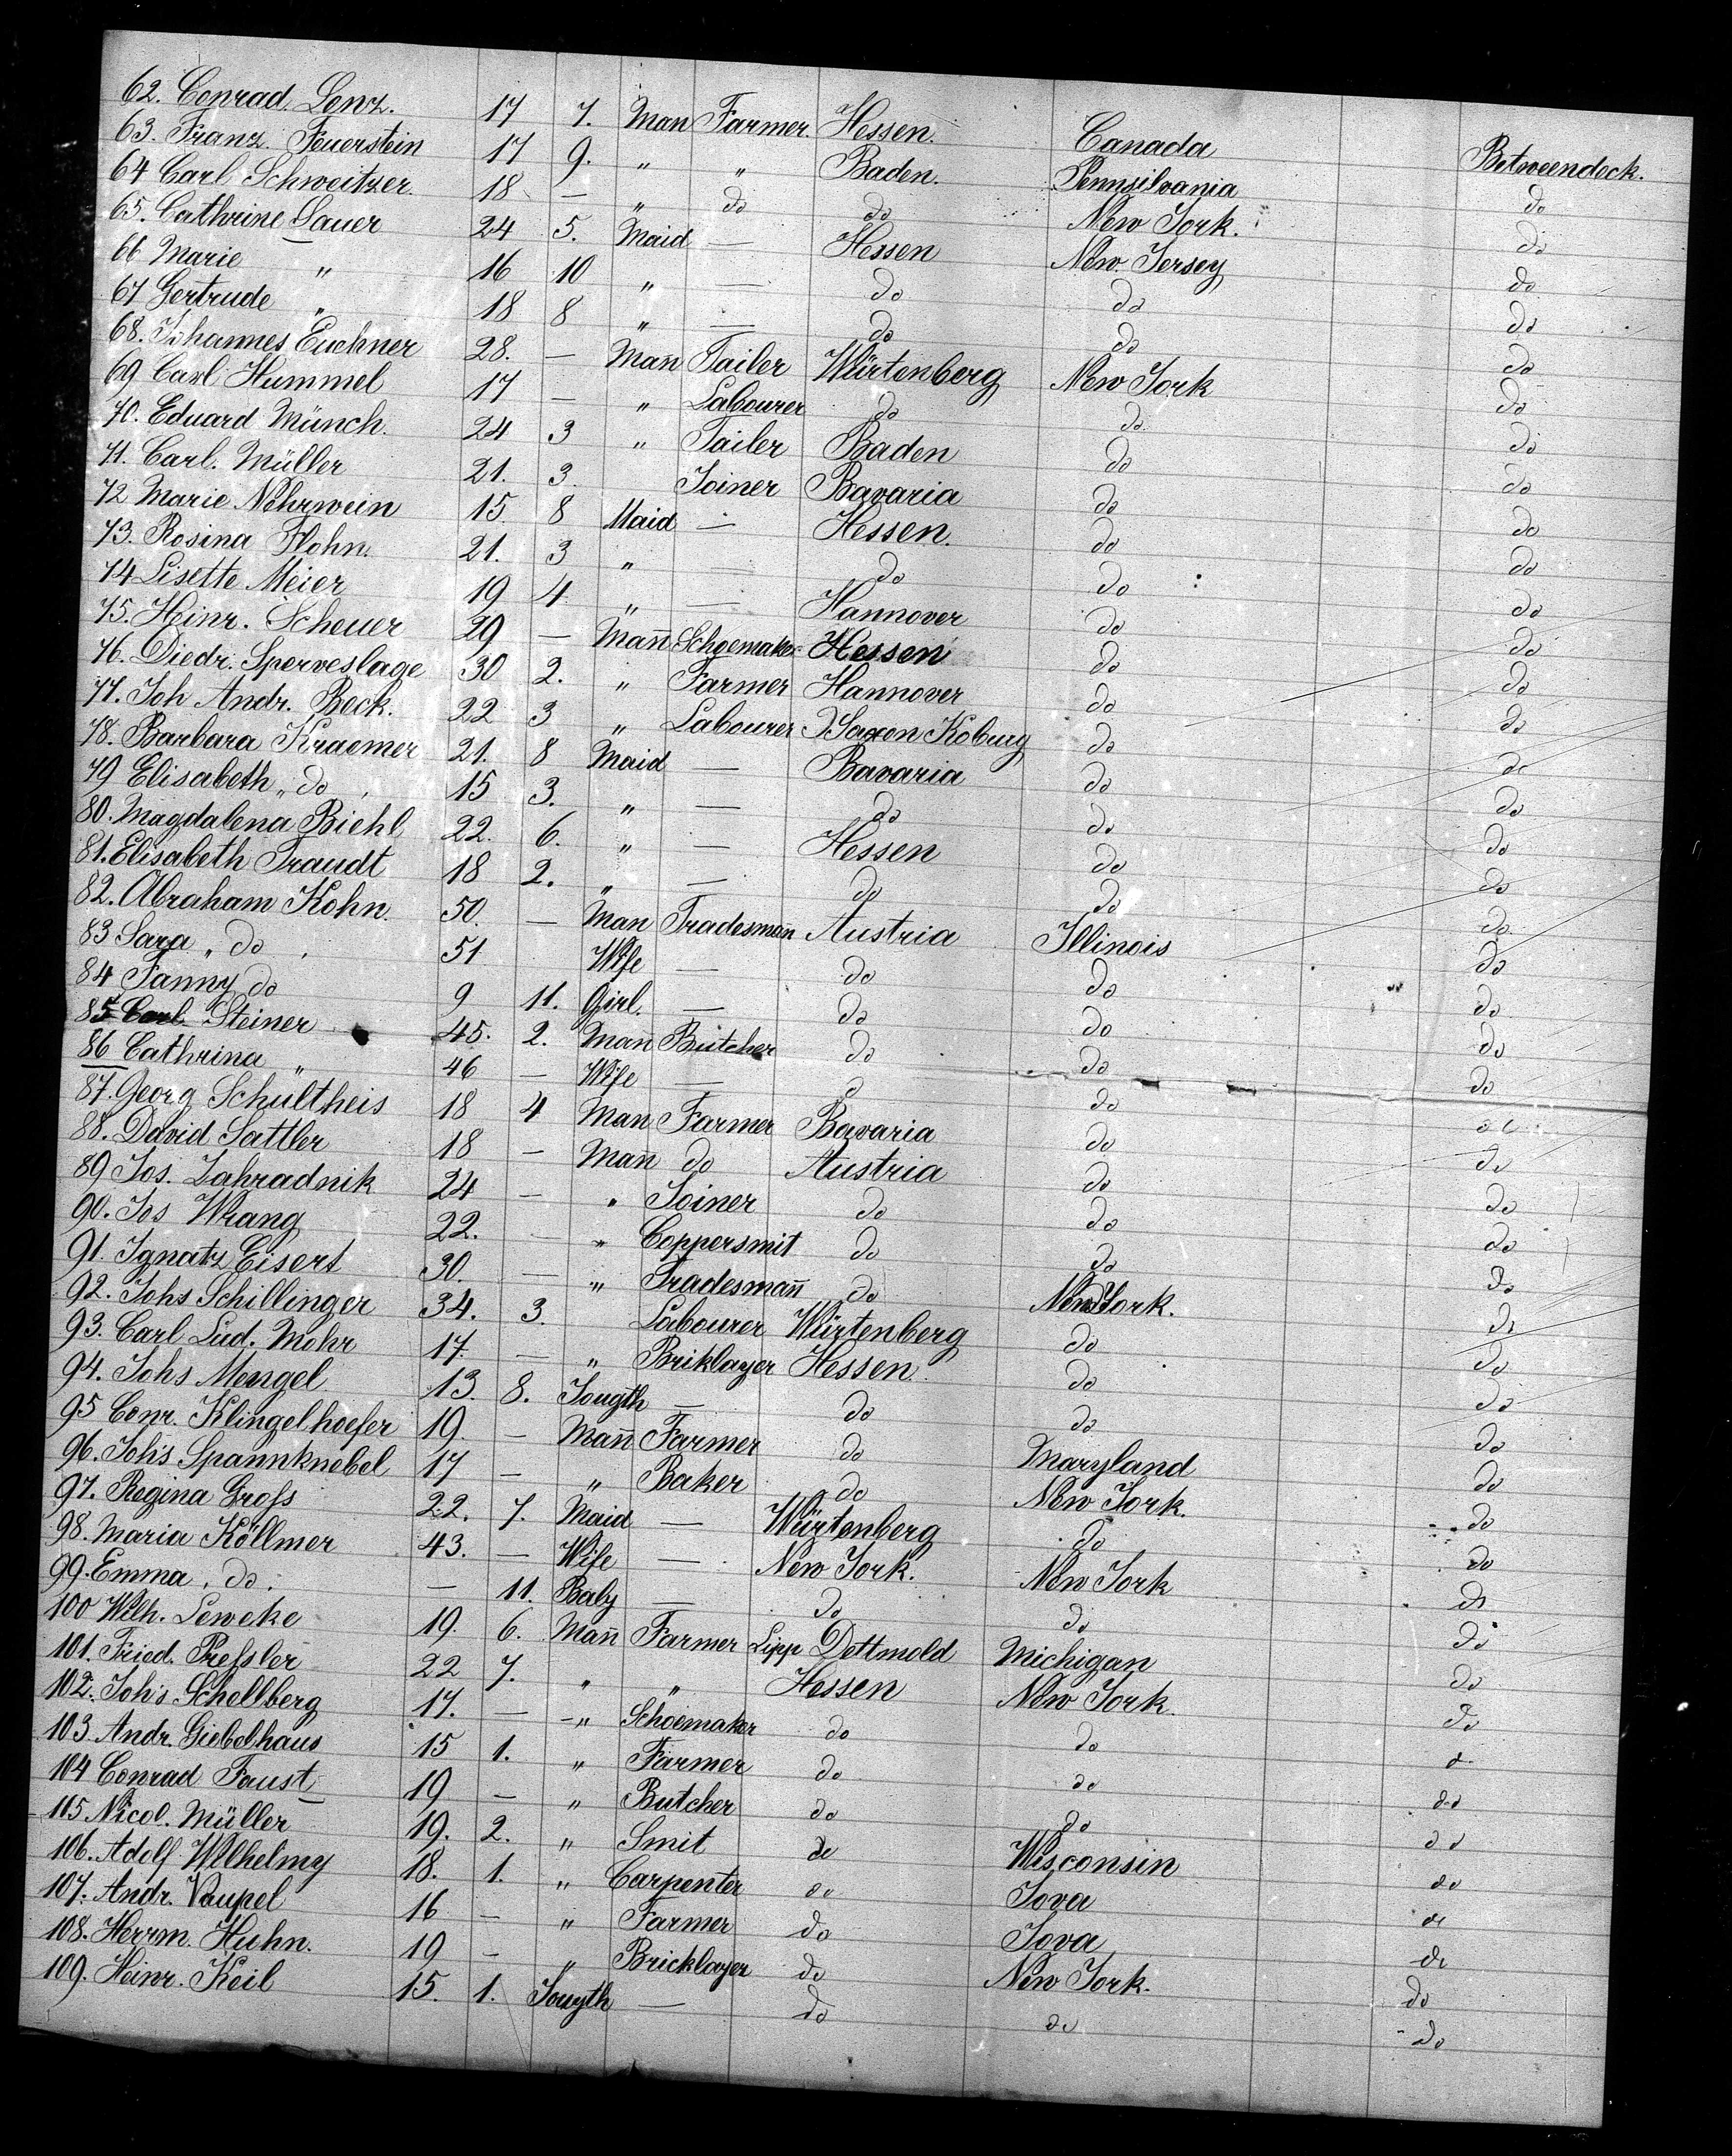 62. Conrad Lenz. 17 7. Man Farmer Hessen. Canada Betweendeck.
63. Franz Feuerstein 17 9. " " Baden. Pennsilvania do
64 Carl Schweitzer 18 — " do do New York. do
65. Cathrine Sauer 24 5. Maid — Hessen New Jersey do
66 Marie " 16 10 " — do do do
67 Gertrude " 18 8 " — do do do
68. Johannes Euchner 28. — Mañ Tailer Würtenberg New York do
69 Carl Hummel 17 — " Labourer do do do
70. Eduard Münch. 24 3 " Tailer Baden do do
71. Carl. Müller 21. 3. Joiner Bavaria do do
72 Marie Nehrwein 15 8 Maid — Hessen. do do
73. Rosina Flohn. 21. 3 " — do do do
74 Lisette Meier 19 4 " — Hannover do do
75. Heinr. Scheuer 29 — Mañ Schoemaker Hessen do do
76. Diedr. Sperveslage 30 2. " Farmer Hannover do do
77. Joh Andr. Beck. 22 3 " Labourer Saxon Koburg do do
78. Barbara Kraemer 21. 8 Maid — Bavaria do do
79 Elisabeth " do 15 3. " — do do do
80. Magdalena Biehl 22. 6. " — Hessen do do
81. Elisabeth Traudt 18 2. " — do do do
82. Abraham Kohn. 50 — Man Tradesmañ Austria Illinois do
83 Sara " do 51 Wife — do do do
84 Fanny do 9 11. Girl. — do do do
85 Carl Steiner 45. 2. Mañ Butcher do do do
86 Cathrina " 46 — Wife — do do
87. Georg Schultheis 18 4 Man Farmer Bavaria do do
88. David Sattler 18 — Mañ do Austria do do
89 Jos. Zahradnik 24 — " Joiner do do do
90. Jos Wrang 22. — " Coppersmit do do do
91. Ignatz Eisert 30. — " Tradesmañ do do do
92. Johs Schillinger 34. 3. Labourer Würtenberg New York. do
93. Carl Lud. Mohr 17. — " Briklayer Hessen. do do
94. Johs Mengel 13. 8. Yougth — do do do
95 Conr. Klingelhoefer 19. — Mañ Farmer do do do
96. Johs Spannknebel 17 — " Baker do Maryland do
97. Regina Groſs 22. 7. Maid — Würtenberg New York. do
98. Maria Köllmer 43. — Wife — New York. do do
99. Emma. do. — 11. Baby — do New York do
100 Wilh. Leweke 19. 6. Mañ Farmer Lipp Dettmold do do
101. Fried. Preſsler 22 7. " " Hessen Michigan do
102. Joh's Schellberg 17. — " Schoemaker do New York. do
103 Andr. Giebelhaus 15 1. " Farmer do do
104 Conrad Faust 19 — " Butcher do do do
105 Nicol. Müller 19. 2. " Smit do do do
106. Adolf Wilhelmy 18. 1. " Carpenter do Wisconsin do
107. Andr. Vaupel 16 — " Farmer do Iova do
108. Herrm. Huhn. 19 — " Bricklayer do Iova do
109. Heinr. Keil 15. 1. Yougth — do New York. do
do do